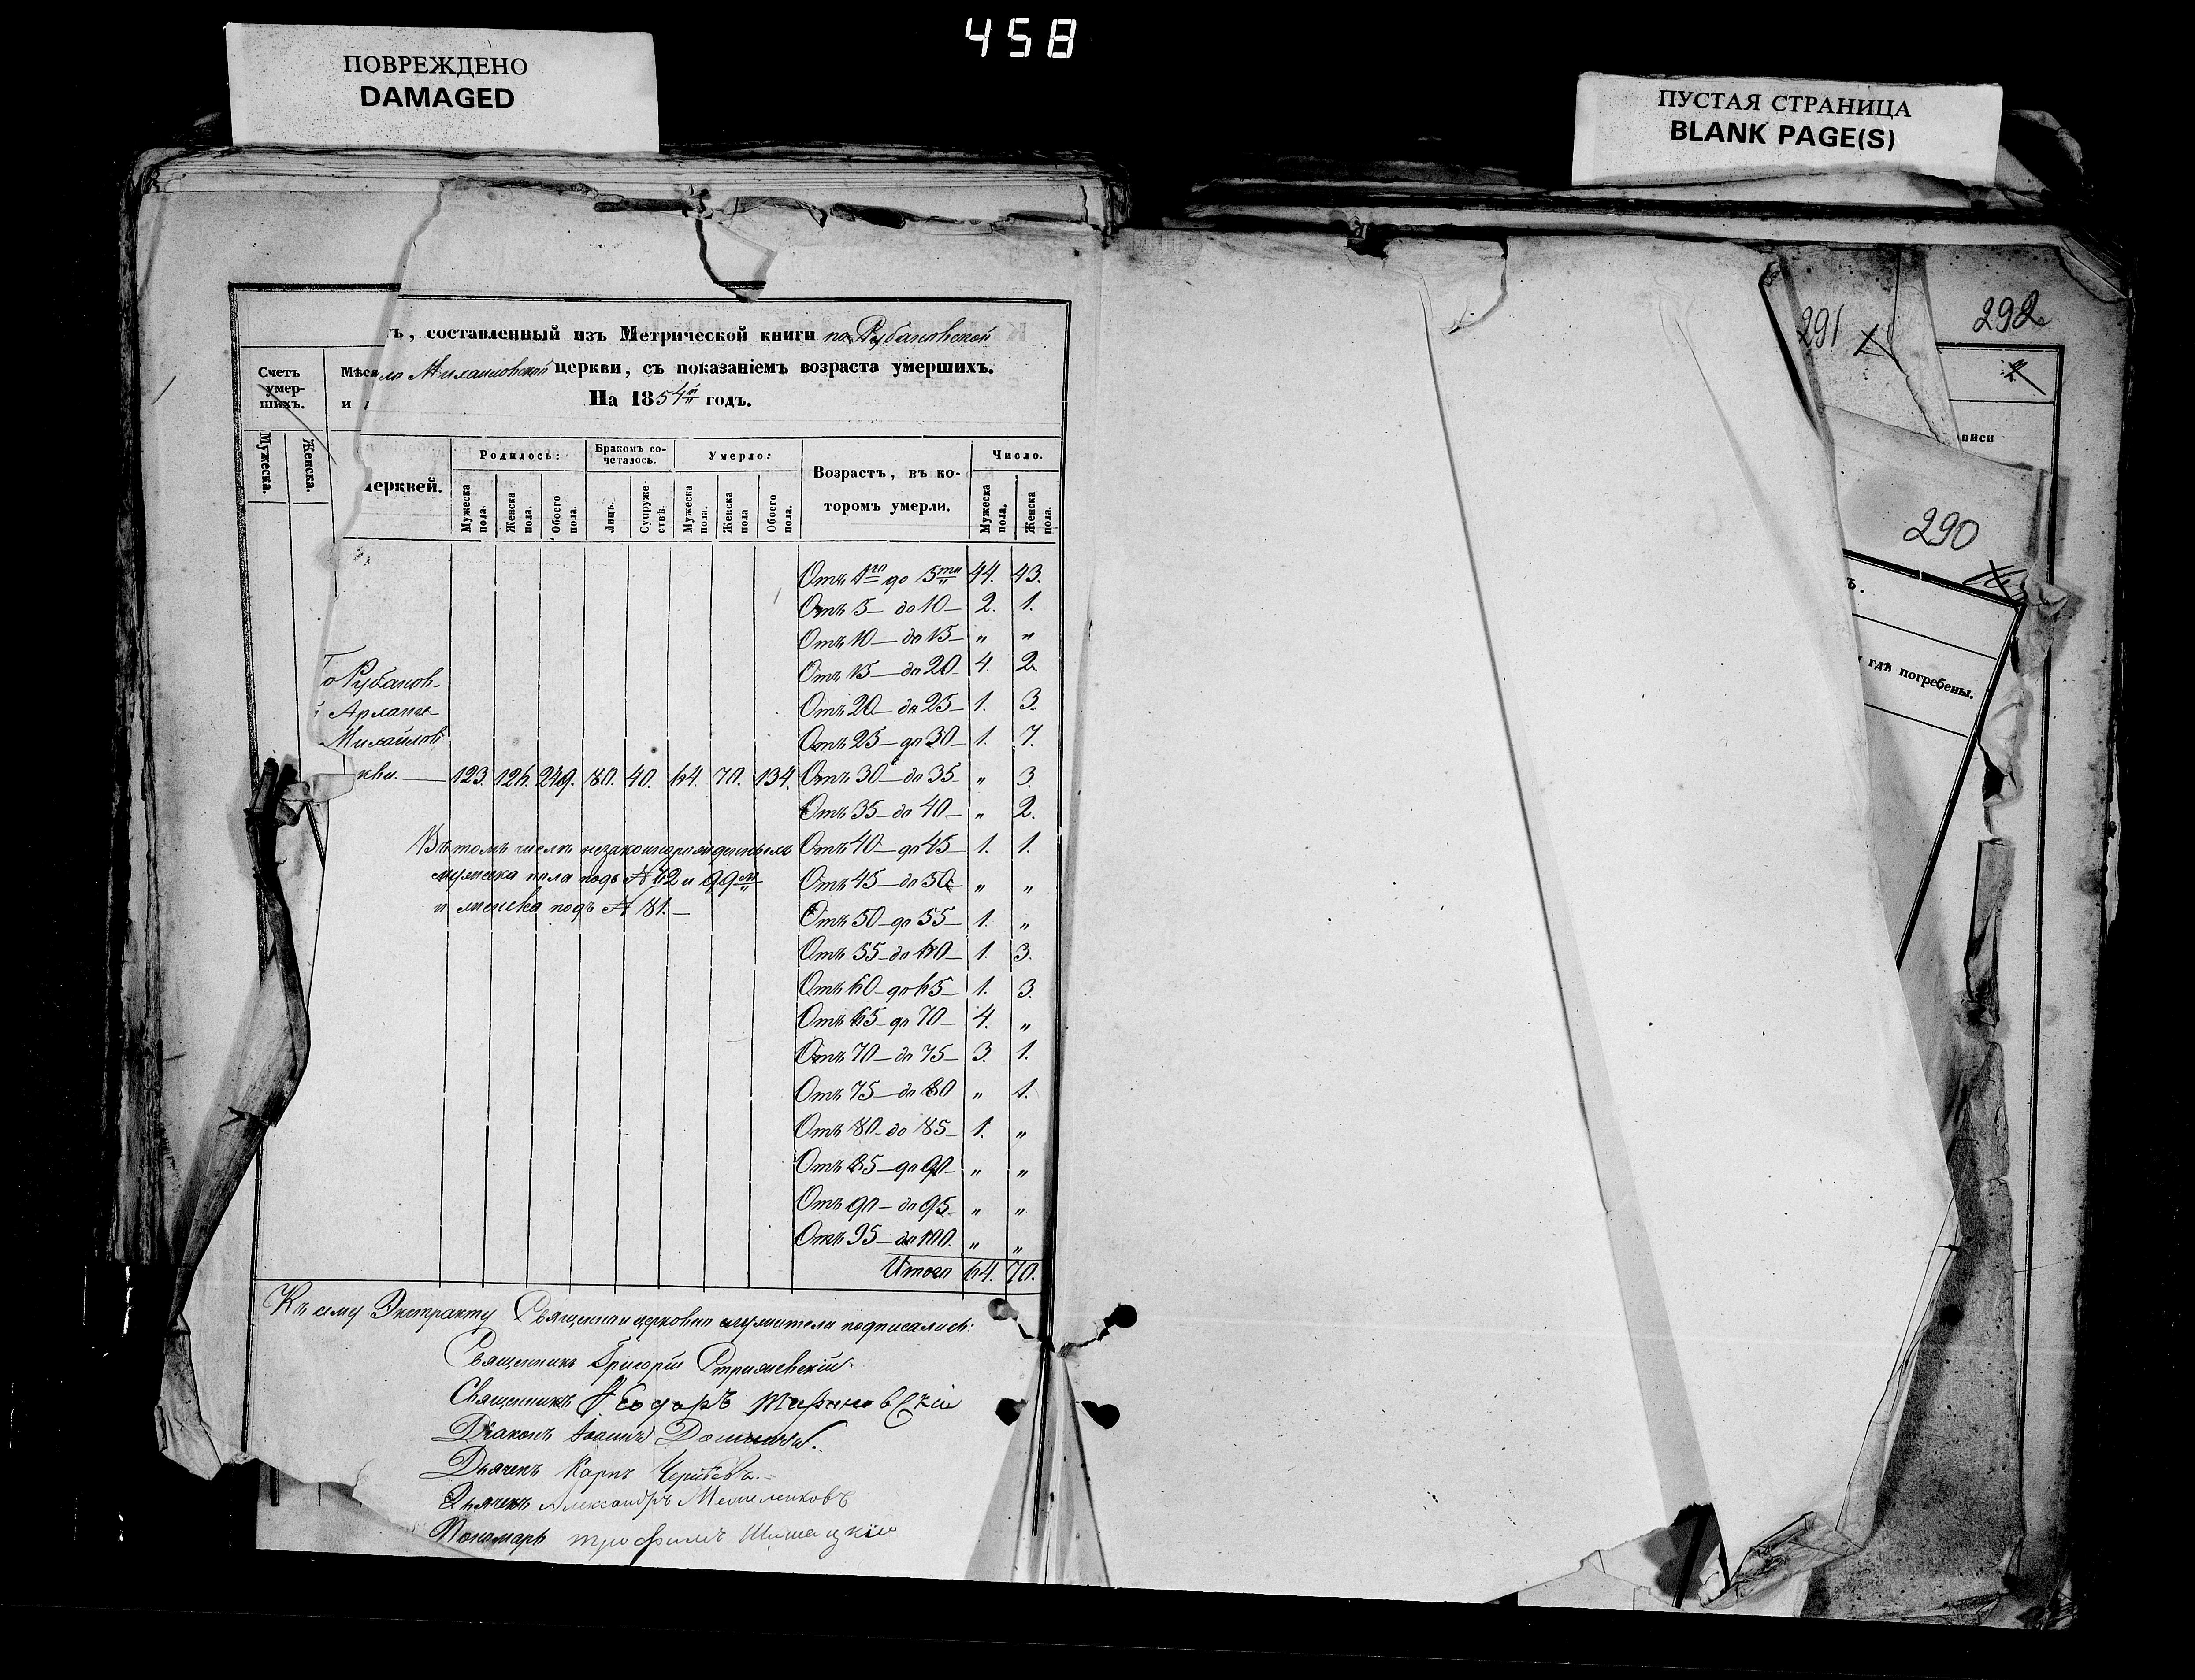 458
ПОВРЕЖДЕНО
DAMAGED
ПУСТАЯ СТРАНИЦА
BLANK PAGE(S)
ъ, составленный изъ Метрической книги по Рубановской
Михаиловской церкви, съ показаніемъ возраста умершихъ.
На 1854й годъ.
Счетъ умер-шихъ.
Мѣся
и
Мужеска.
Женска.
церквей.
Родилось:
Бракомъ со-четалось.
Умерло:
Возрастъ, въ ко-торомъ умерли.
Число.
Мужеска пола.
Женска пола.
Обоего пола.
Лицъ.
Супруже-ствъ.
Мужеска пола.
Женска пола
Обоего пола.
Мужеска пола.
Женска пола.
Отъ 1го до 5ти 44. 43.
Отъ 5 — до 10 — 2. 1.
Отъ 10 — до 15 — " "
Отъ 15 — до 20 4. 2.
Отъ 20 — до 25 — 1. 3.
Отъ 25 — до 30 — 1. 7.
о Рубанов-
Арханге-
Михайлов
кви. — 123. 126. 249. 80. 40. 64. 70. 134. Отъ 30 — до 35 " 3.
Отъ 35 — до 40 — " 2.
Въ томъ числѣ незаконнорожденныхъ Отъ 40 — до 45 — 1. 1.
мужска пола подъ № 12 и 99м Отъ 45 — до 50 " "
и женска подъ № 81. — Отъ 50 — до 55 — 1. "
Отъ 55 — до 60 — 1. 3.
Отъ 60 — до 65 — 1. 3.
Отъ 65 — до 70 — 4. "
Отъ 70 — до 75 — 3. 1.
Отъ 75 — до 80 " 1.
Отъ 80 — до 85 — 1. "
Отъ 85 — до 90 — " "
Отъ 90 — до 95 — " "
Отъ 95 — до 100. " "
Итого 64. 70.
Къ сему Экстракту Священно и церковно служители подписались:
Священникъ Григорій Стрижевскій.
Священникъ Ѳеодоръ
Діаконъ Іоаннъ
Дьячекъ Карпъ
Дьячекъ Александръ Мешеленковъ
Пономарь Трофимъ Шишацкій
291
292
2
писи
290
ъ.
и гдѣ погребены.